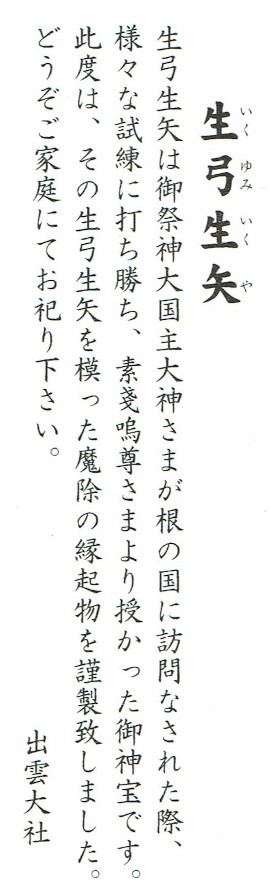 生弓生矢
いくゆみいくや
生弓生矢は御祭神大国主大神さまが根の国に訪問なされた際、
様々な試練に打ち勝ち、素戔嗚尊さまより授かった御神宝です。
此度は、その生弓生矢を模った魔除の縁起物を謹製致しました。
どうぞご家庭にてお祀り下さい。
出雲大社